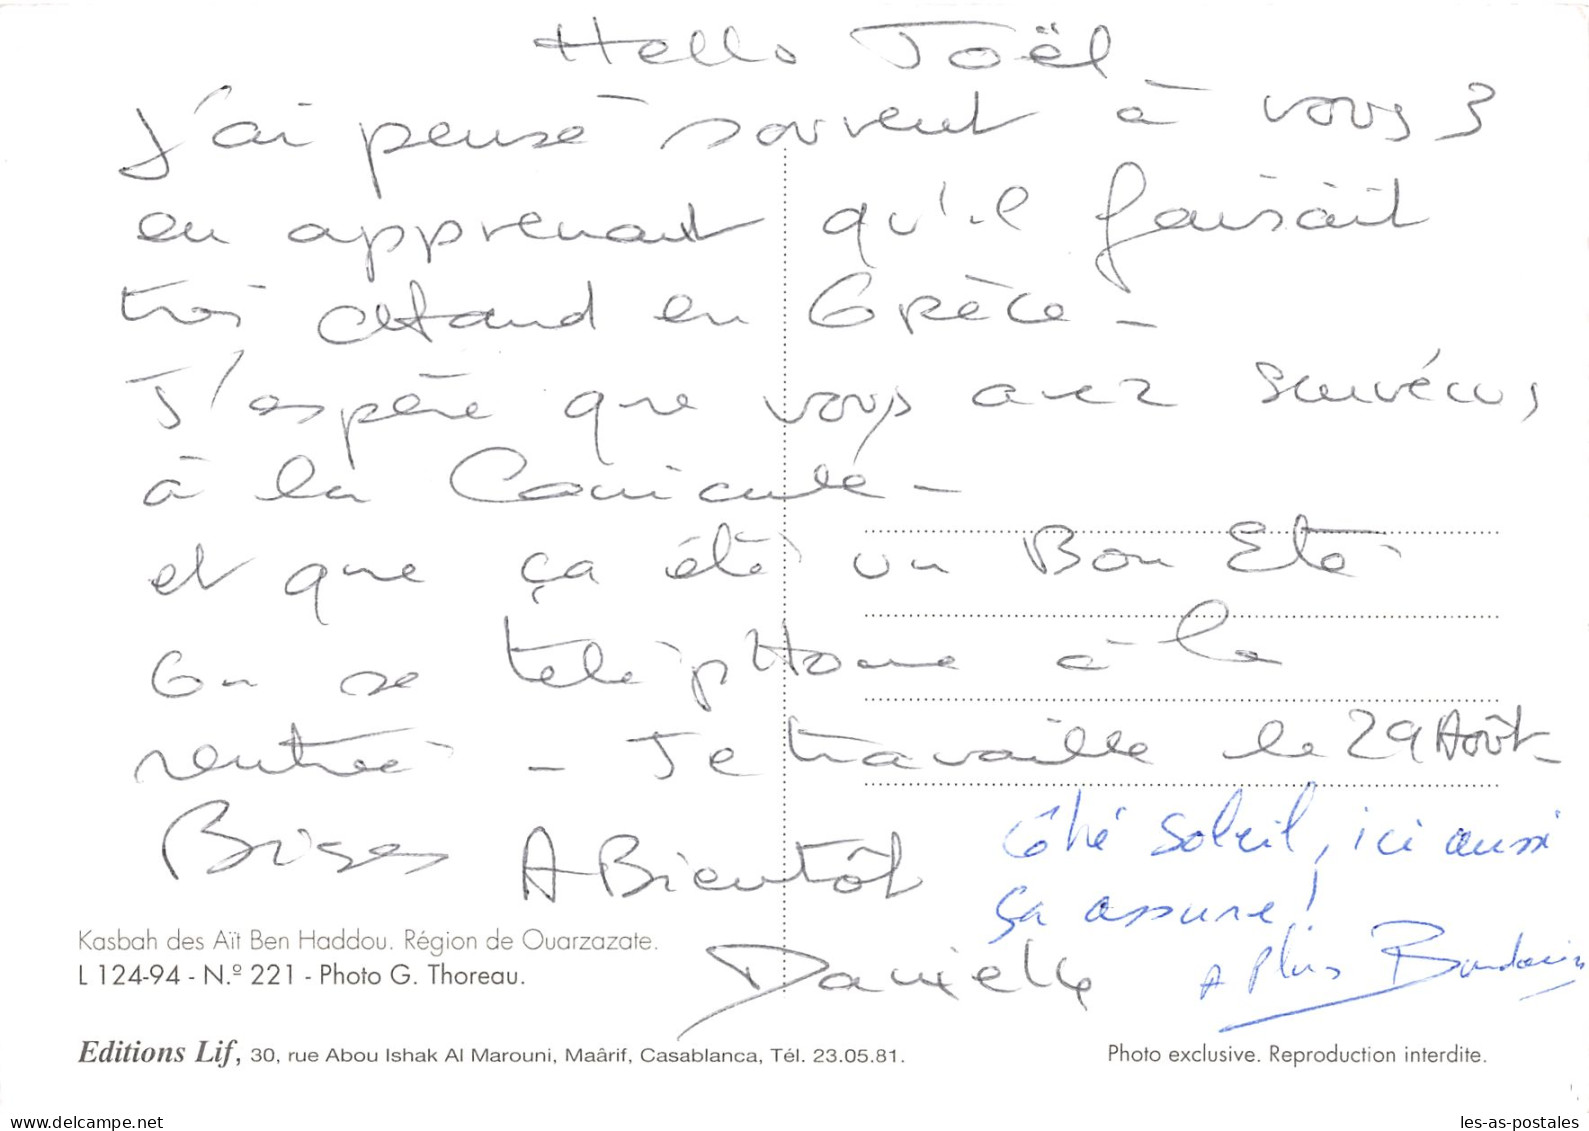 Hello Joël
J'ai pensé souvent à vous 3
en apprenant qu'il faisait
trois chaud en Grèce -
J'espère que vous avez survécus
à la Canicule -
et que ça été un Bon Eté -
On se télépHone à la
rentrée - Je travaille le 29 Août -
Bises A Bientôt
Danielle
Côté soleil, ici aussi
ça assure !
A plus Baudouin
Kasbah des Aït Ben Haddou. Région de Ouarzazate.
L 124-94 - N.º 221 - Photo G. Thoreau.
Editions Lif, 30, rue Abou Ishak Al Marouni, Maârif, Casablanca, Tél. 23.05.81.
Photo exclusive. Reproduction interdite.
www.delcampe.net
les-as-postales